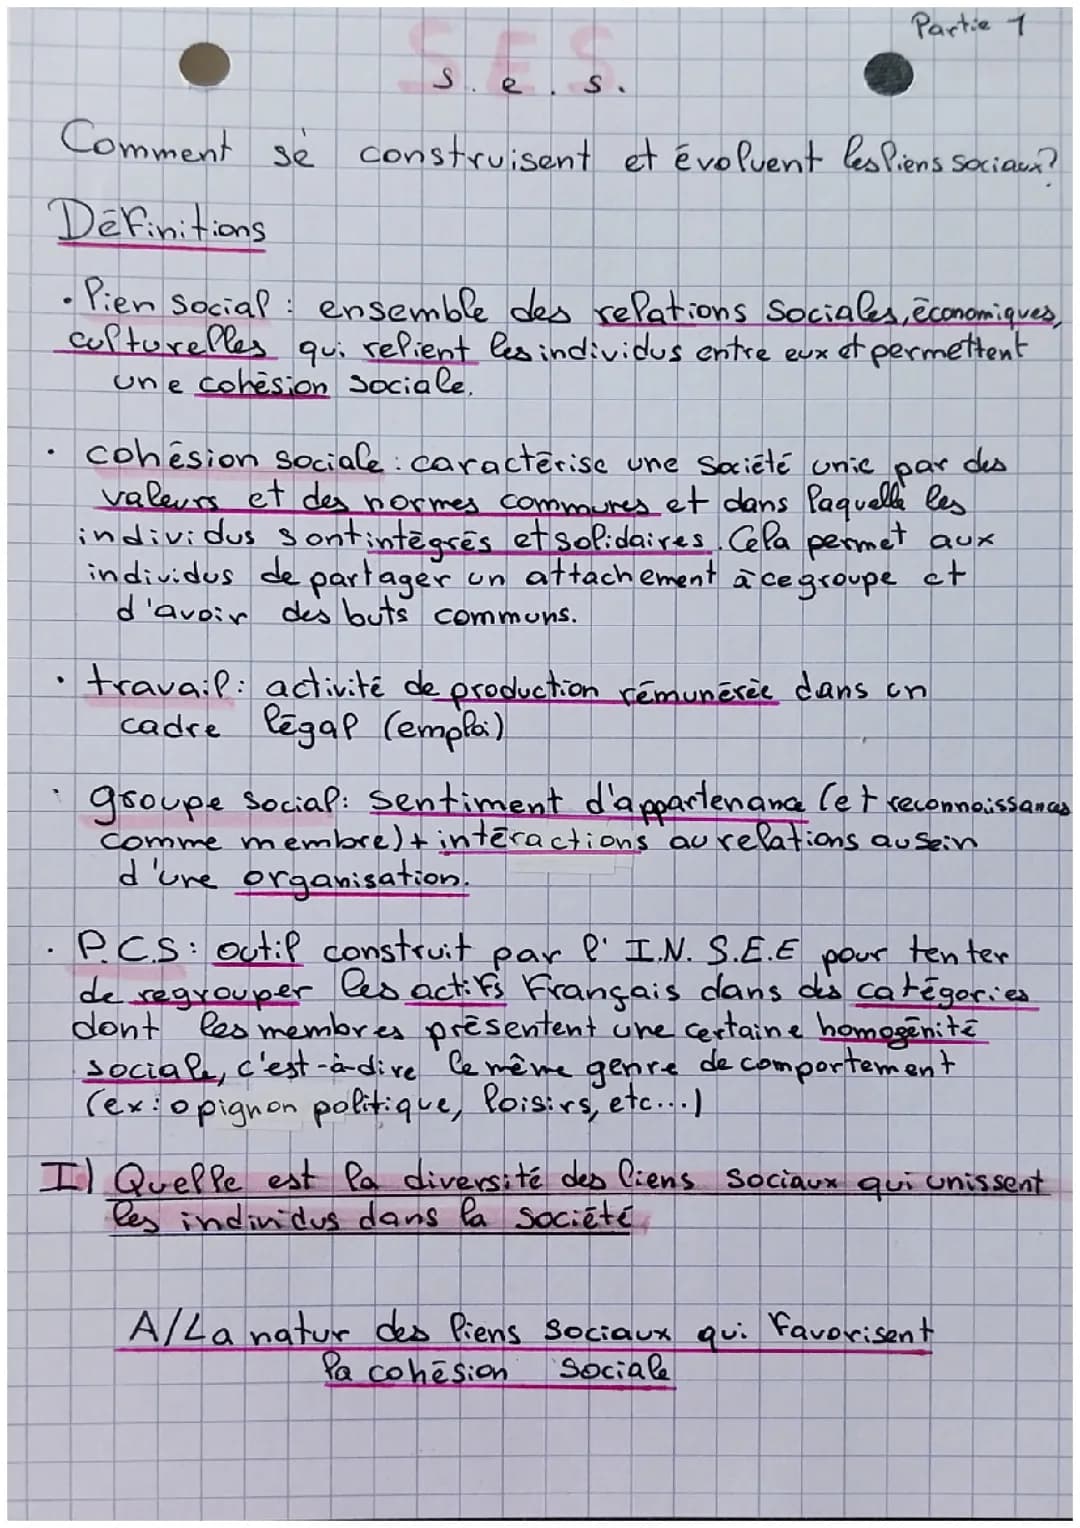 Partie 1
SES
s. e. s.
Comment se construisent et évoluent les liens sociaux?
Définitions
• lien social : ensemble des relations sociales, économiques,
culturelles qui relient les individus entre eux et permettent
une cohésion sociale.
• cohésion sociale : caractérise une société unie par des
valeurs et des normes communes et dans laquelle les
individus sont intégrés et solidaires. Cela permet aux
individus de partager un attachement à ce groupe et
d'avoir des buts communs.
• travail : activité de production rémunérée dans un
cadre légal (emploi)
• groupe social : sentiment d'appartenance (et reconnaissances
comme membre) + intéractions au relations au sein
d'une organisation.
• P.C.S : outil construit par l' I.N.S.E.E pour tenter
de regrouper les actifs Français dans des catégories
dont les membres présentent une certaine homogénité
sociale, c'est-à-dire le même genre de comportement
(ex : opignon politique, loisirs, etc...)
I) Quelle est la diversité des liens sociaux qui unissent
les individus dans la société.
A/ La natur des liens sociaux qui favorisent
la cohésion sociale